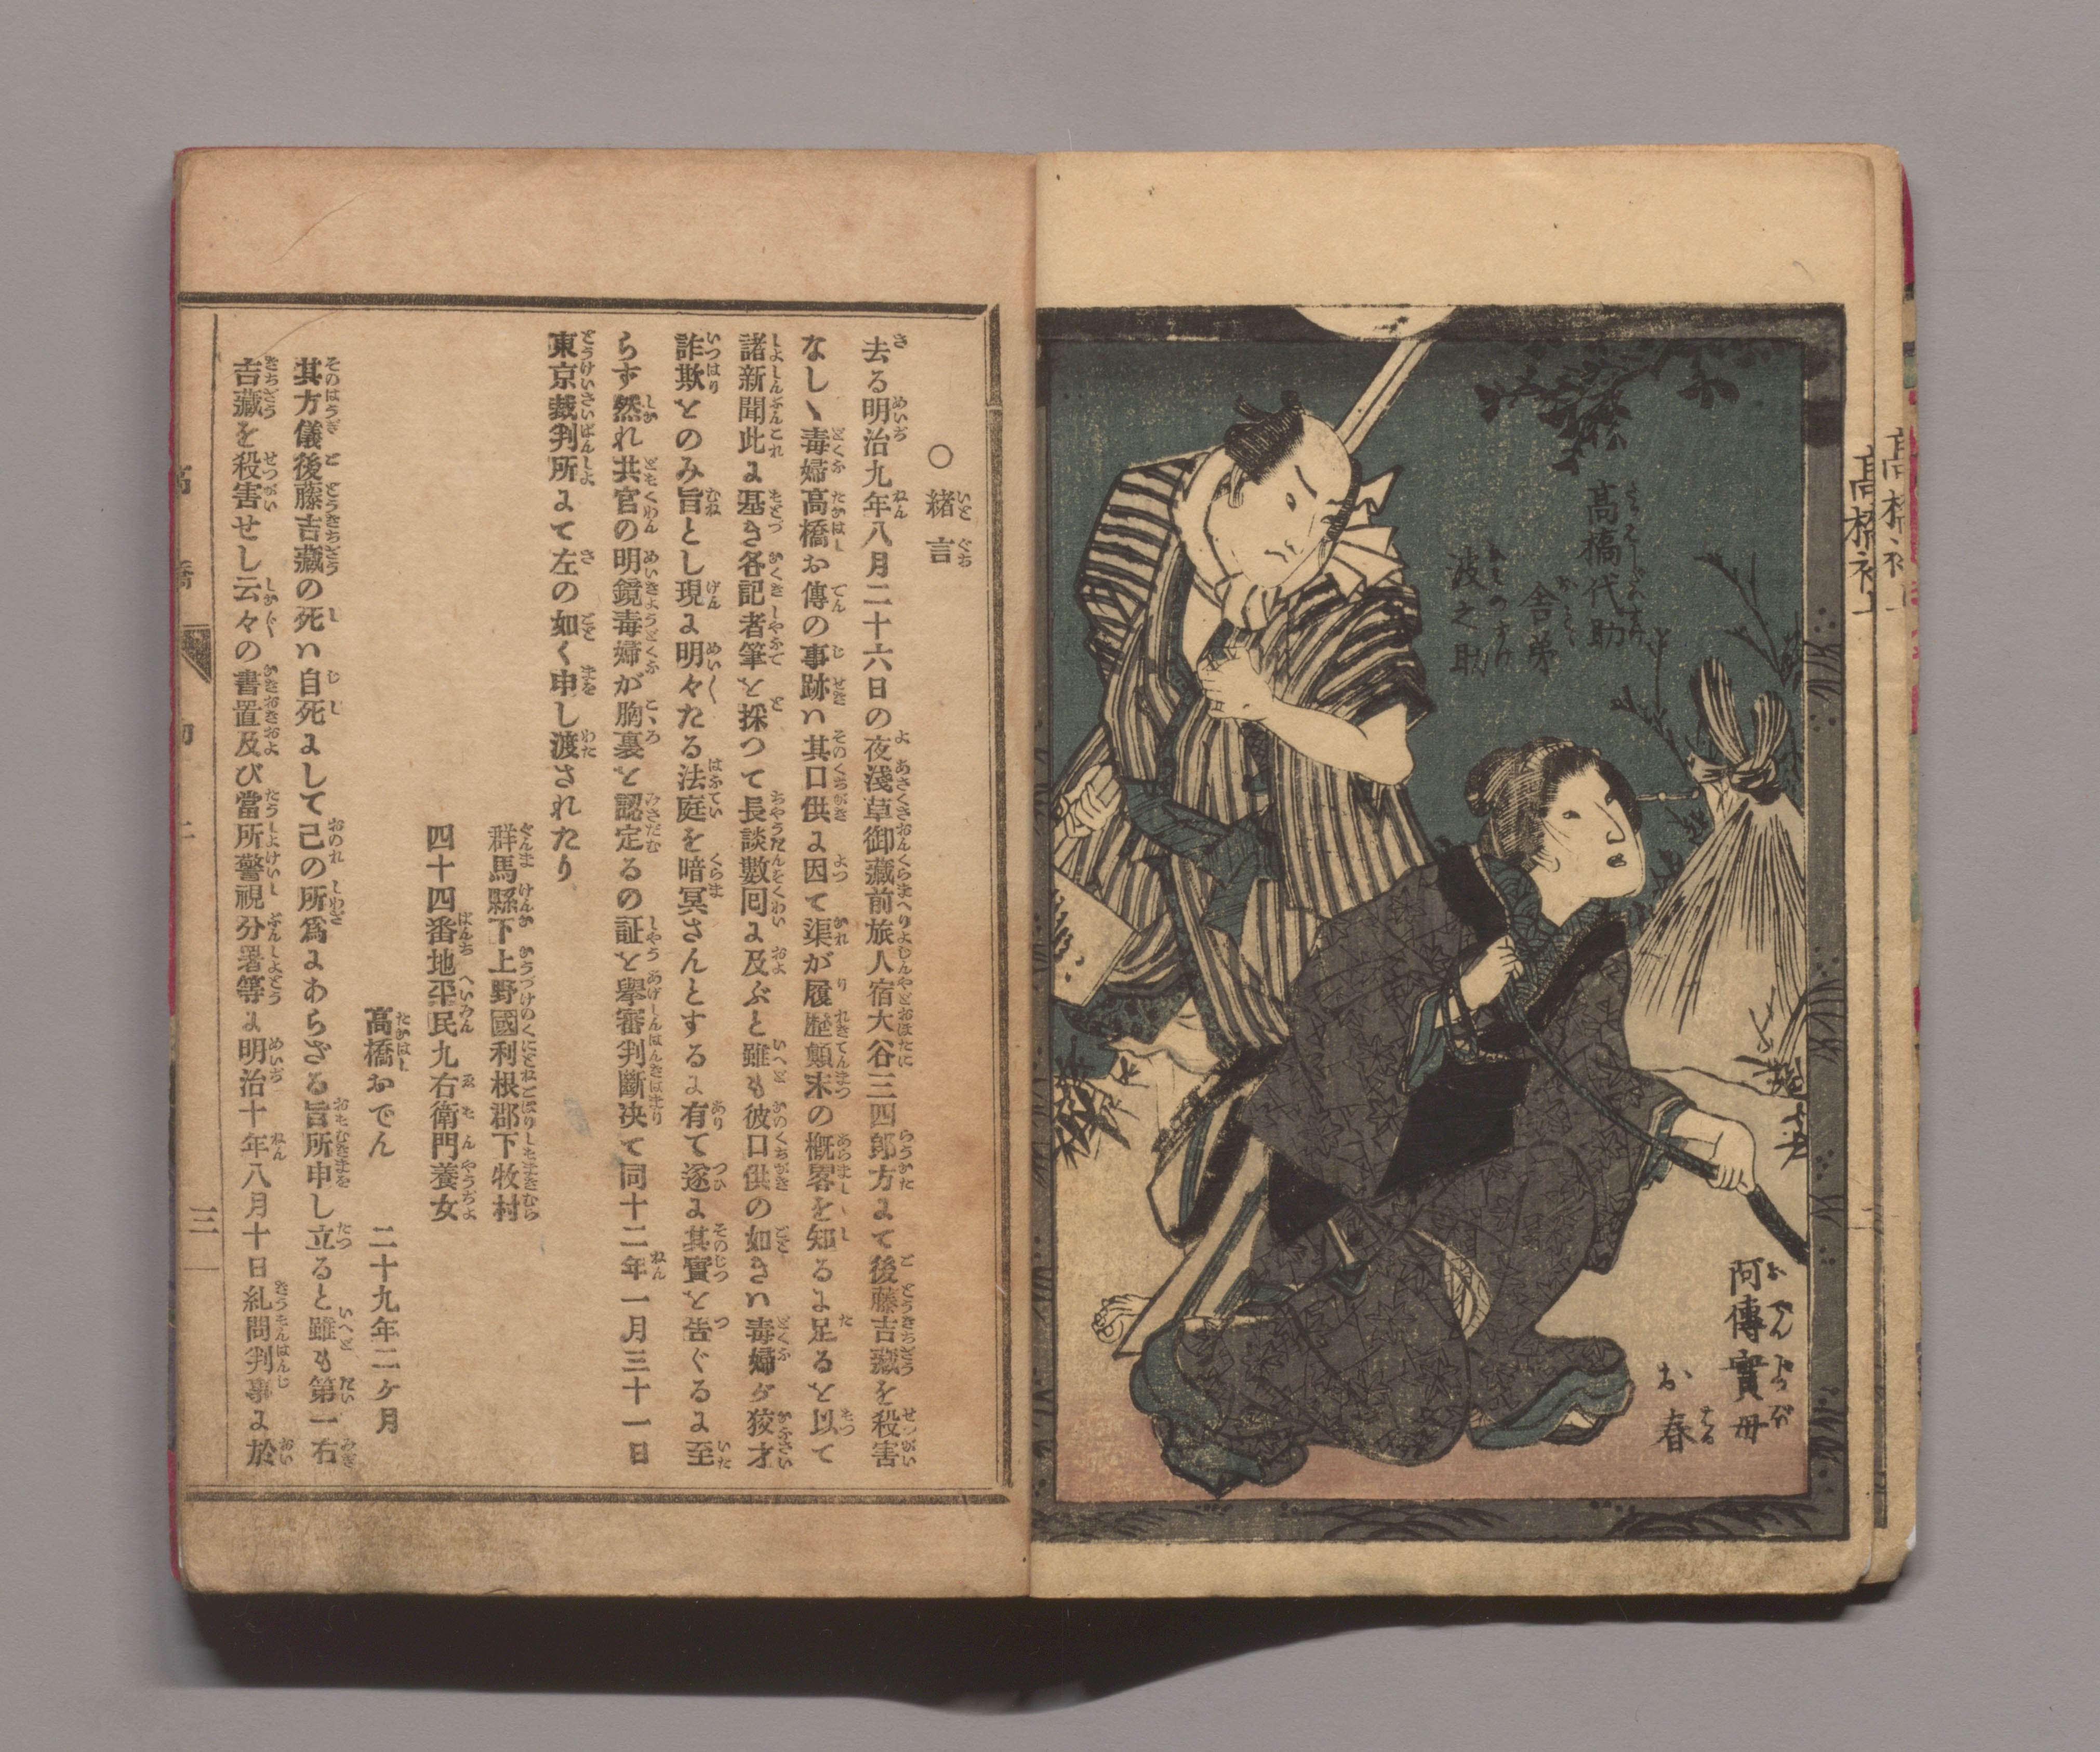 高橋代助
舎弟
波之助
阿傳實母
お春
○緒言
去る明治九年八月二十六日の夜淺草御藏前旅人宿大谷三四郎方よて後藤吉藏を殺害
なしゝ毒婦高橋お傳の事跡ハ其口供よ因て渠が履歴顛末の概畧を知るよ足ると以て
諸新聞此よ基き各記者筆と採つて長談數回よ及ぶと雖も彼口供の如きハ毒婦が狡才
詐欺とのみ旨とし現よ明々たる法庭を暗冥さんとするよ有て遂よ其實と告ぐるよ至
らず然れ共官の明鏡毒婦が胸裏と認定るの証と擧審判斷决て同十二年一月三十一日
東京裁判所よて左の如く申し渡されたり
群馬縣下上野國利根郡下牧村
四十四番地平民九右衛門養女
高橋おでん 二十九年二ケ月
其方儀後藤吉藏の死ハ自死よして己の所爲よあらざる旨所申し立ると雖も第一右
吉藏を殺害せし云々の書置及び當所警視分署等よ明治十年八月十日糺問判事よ於
三